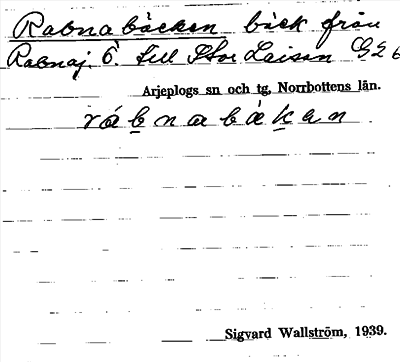 Rabnabäcken bäck från
Rabnaj. Ö. till Stor Laisan G26
Arjeplogs sn och tg, Norrbottens län.
rábnabäkan
Sigvard Wallström, 1939.